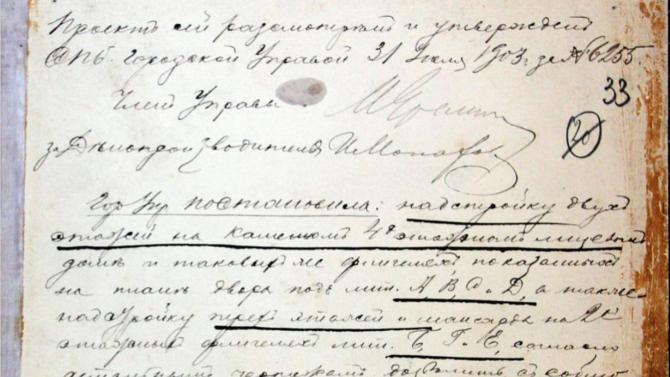 Проектъ сей разсмотренъ и утвержденъ
СПб. Городской Управой 31 Июля 1903 г. за № 6255
33
Членъ Управы
20
за Дѣлопроизводителя
Гор. Упр. постановила: надстройку двухъ
этажей на каменномъ 4хъ этажномъ лицевомъ
домѣ и таковыхъ же флигеляхъ показанныхъ
на планѣ двора подъ лит. А, В, С и D, а также
надстройку этажей и мансарды на 2х
этажныхъ флигеляхъ лит. Б, Г, Е, согласно
чертежамъ дозволить съ